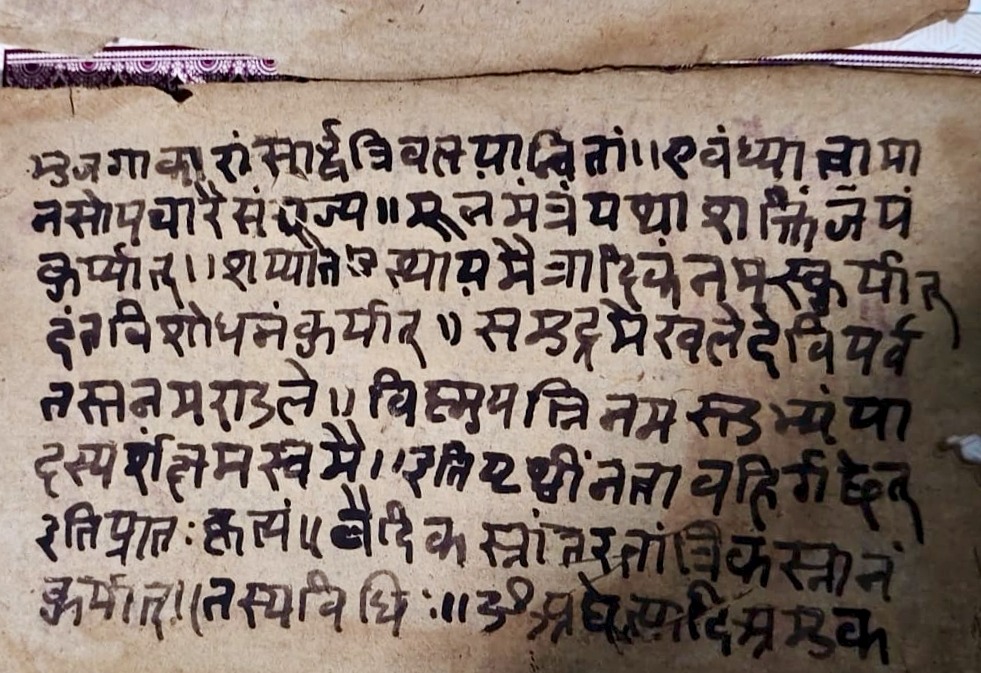 मुजगाकारां सार्द्धत्रिवलयान्वितां।।एवंध्यात्वामा
नसोपचारैसंपूज्य॥मूलमंत्रंयथाशक्तिंजपं
कुर्य्यात्।।शय्योते स्थायमैत्रादिकंनमस्कुर्यात्
दंतविशोधनंकुर्यात्॥समुद्रमेखलेदेविपर्व
तस्तनमराडले॥विष्मुपत्निनमस्तुभ्यंपा
दस्पर्शंक्षमस्वमै।।इतिपृथ्वींनत्वावहिर्गछेत्
इतिप्रातःकृत्यं॥वैदिकस्नांतरतांत्रिकंस्नानं
कुर्यात्।।तस्यविधिः॥ॐअद्येत्यादिअमुक